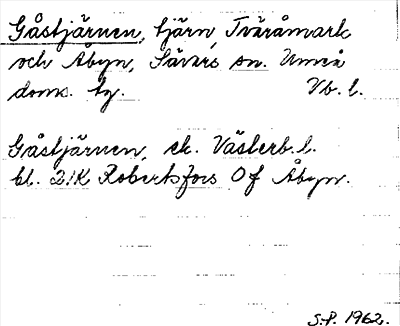 Gåstjärnen, tjärn, Tväråmark
och Åbyn, Sävars sn. Umeå
doms. tg. Vb. l.
Gåstjärnen, ek. Västerb. l.
bl. 21K Robertsfors 0f Åbyn.
S.P. 1962.